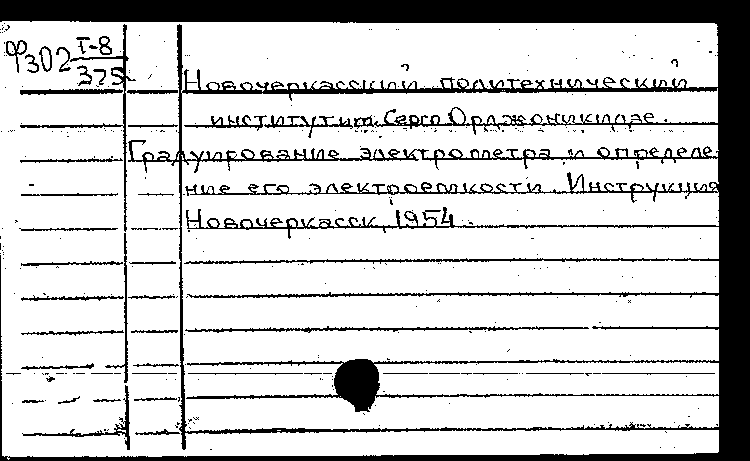 Ф302 I-8
375
Новочеркасский политехнический
институт им. Серго Орджоникидзе.
Градуирование электрометра и определе-
ние его электроемкости. Инструкция
Новочеркасск, 1954.